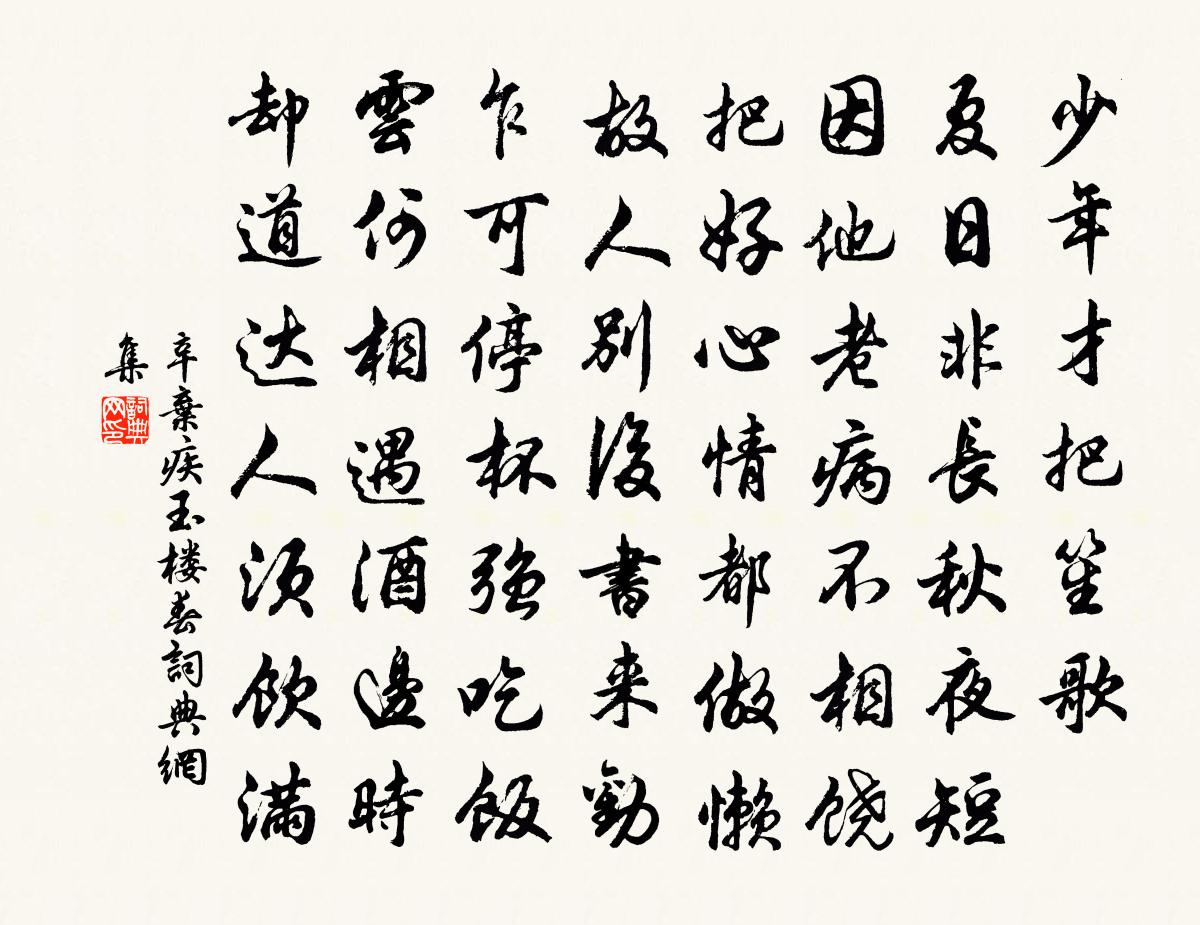 少年才把笙歌
夏日非長秋夜短
因他老病不相饒
把好心情都做懒
故人别後書来勸
乍可停杯強吃飯
雲何相遇酒邊時
却道达人須飲满
辛棄疾玉楼春詞典網
集
詞典网印